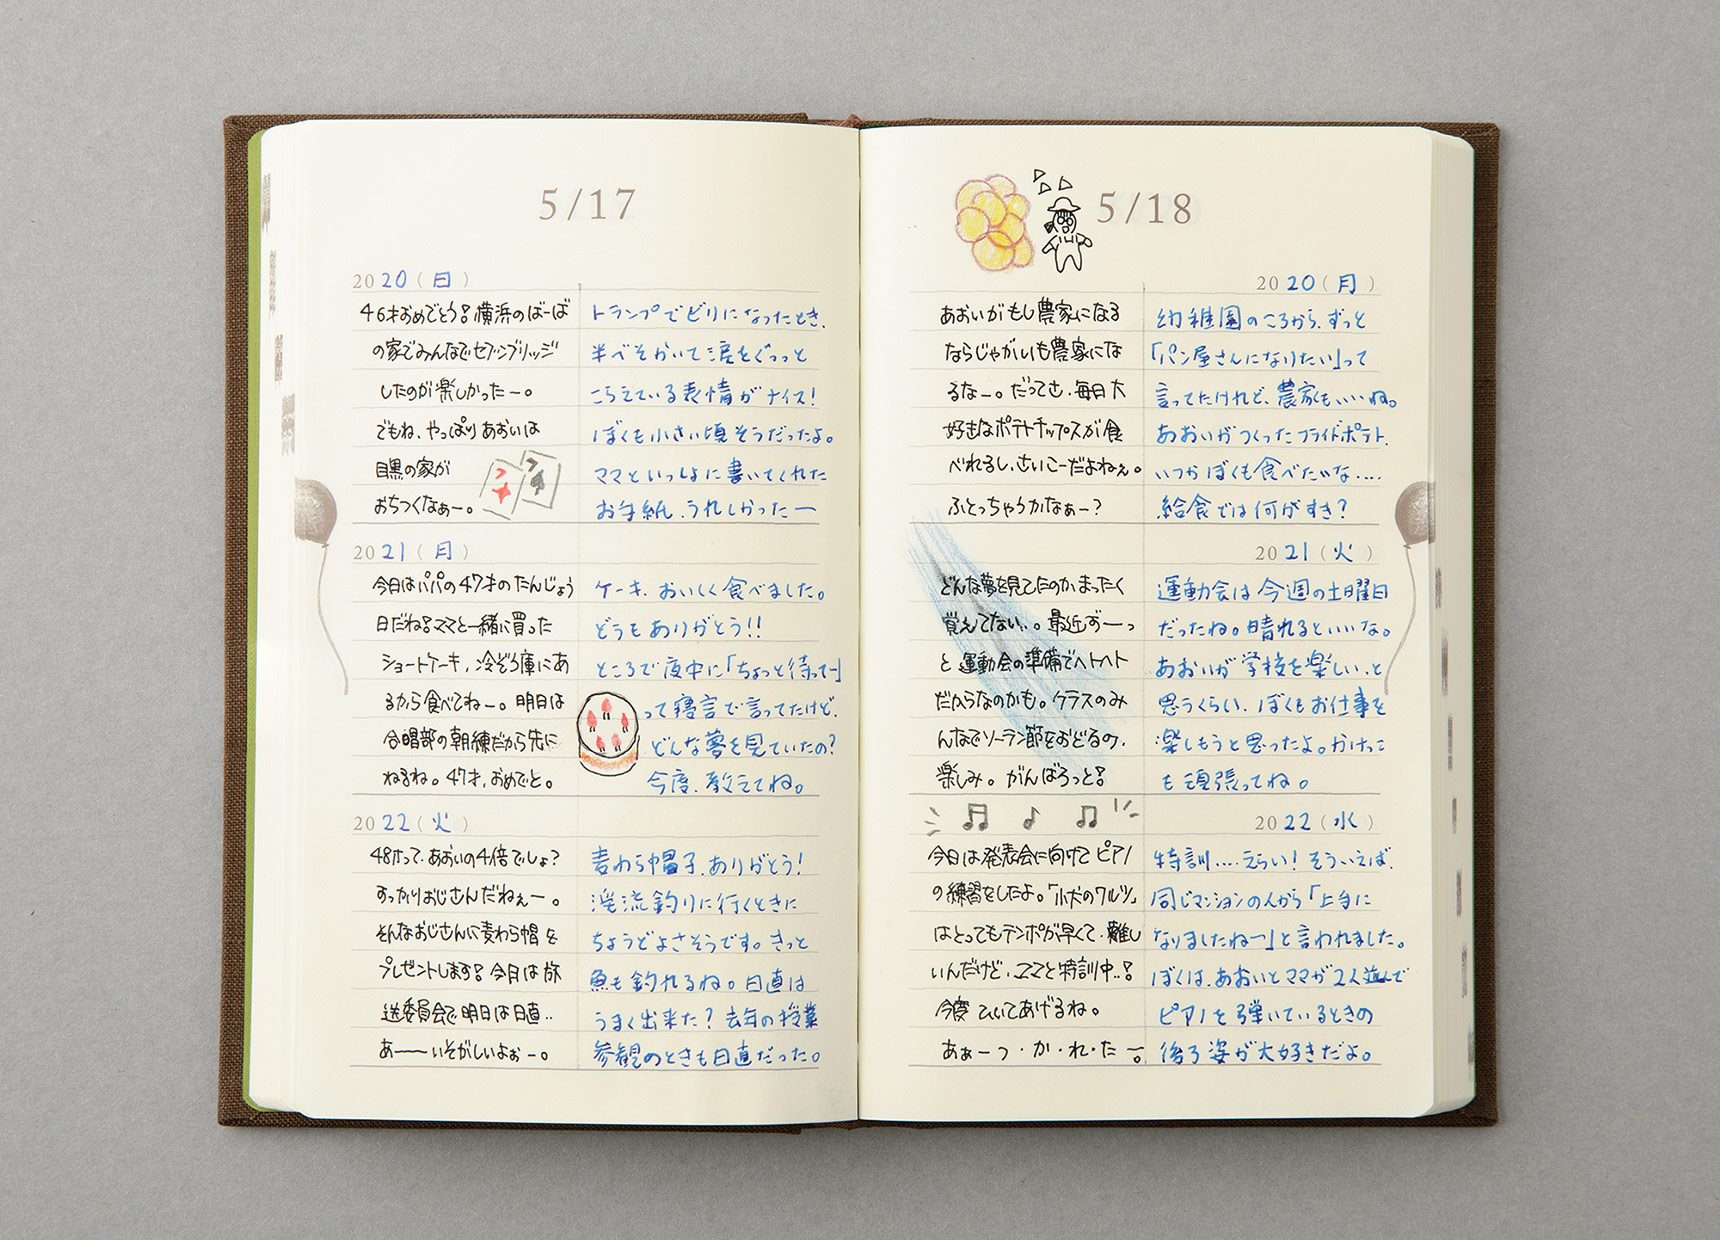 5/17
2020(日)
46才おめでとう!横浜のばーば
の家でみんなでセブンブリッジ
したのが楽しかったー。
でもね、やっぱりあおいは
目黒の家が
おちつくなぁー。
トランプでビリになったとき、
半べそかいて涙をぐっっと
こらえている表情がナイス!
ぼくも小さい頃そうだったよ。
ママといっしょに書いてくれた
お手紙、うれしかったー
2021(月)
今日はパパの47才のたんじょう
日だね!ママと一緒に買った
ショートケーキ、冷ぞう庫にあ
るから食べてねー。明日は
合唱部の朝練だから先に
ねるね。47才、おめでと。
ケーキ、おいしく食べました。
どうもありがとう!!
ところで夜中に「ちょっと待ってー」
って寝言で言ってたけど、
どんな夢を見ていたの?
今度、教えてね。
2022(火)
48才って、あおいの4倍でしょ?
すっかりおじさんだねぇー。
そんなおじさんに麦わら帽を
プレゼントします!今日は放
送委員会で明日は日直..
あ——いそがしいよぉー。
麦わら帽子、ありがとう!
渓流釣りに行くときに
ちょうどよさそうです。きっと
魚も釣れるね。日直は
うまく出来た?去年の授業
参観のときも日直だった。
5/18
2020(月)
あおいがもし農家になる
ならじゃがいも農家にな
るなー。だってさ、毎日大
好きなポテトチップスが食
べれるし、さいこーだよねぇ。
ふとっちゃうかなぁー?
幼稚園のころから、ずっと
「パン屋さんになりたい」って
言ってたけれど、農家もいいね。
あおいがつくったフライドポテト、
いつかぼくも食べたいな....
給食では何がすき?
2021(火)
どんな夢を見てたのか、まったく
覚えてない..。最近ずーっ
と運動会の準備でヘトヘト
だからなのかも。クラスのみ
んなでソーラン節をおどるの、
楽しみ。がんばろっと!
運動会は今週の土曜日
だったね。晴れるといいな。
あおいが学校を楽しい、と
思うくらい、ぼくもお仕事を
楽しもうと思ったよ。かけっこ
も頑張ってね。
2022(水)
今日は発表会に向けてピアノ
の練習をしたよ。「小犬のワルツ」
はとってもテンポが早くて、難し
いんだけど、ママと特訓中..!
今度ひいてあげるね。
あぁーつ・か・れ・たー。
特訓....えらい!そういえば、
同じマンションの人から「上手に
なりましたねー」と言われました。
ぼくは、あおいとママが2人並んで
ピアノを弾いているときの
後ろ姿が大好きだよ。